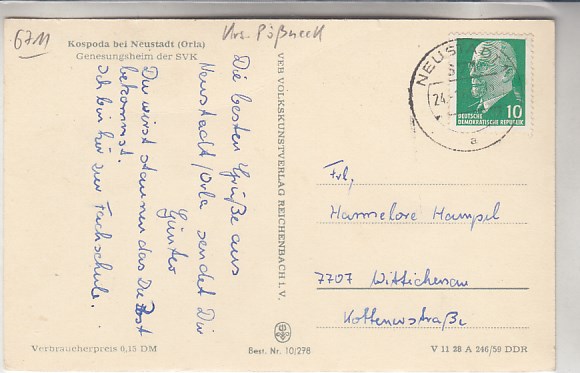 6711
Krs. Pößneck
Kospoda bei Neustadt (Orla)
Genesungsheim der SVK
Die besten Grüße aus
Neustadt/Orla sendet Dir
Günter
Du wirst staunen das Du Post
bekommst.
Ich bin hier zur Fachschule.
VEB VOLKSKUNSTVERLAG REICHENBACH I. V.
NEUSTADT
24.
a
10
DEUTSCHE
DEMOKRATISCHE REPUBLIK
Frl,
Hannelore Hampel
7707 Wittichenau
Kottenerstraße
Verbraucherpreis 0,15 DM
Best. Nr. 10/298
V 11 28 A 246/59 DDR